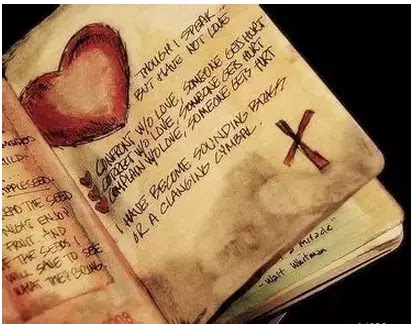 THOUGH I SPEAK...
BUT HAVE NOT LOVE
CONFRONT W/O LOVE, SOMEONE GETS HURT
CORRECT W/O LOVE, SOMEONE GETS HURT
COMPLAIN W/O LOVE, SOMEONE GETS HURT
I HAVE BECOME SOUNDING BRASS
OR A CLANGING CYMBAL.
APPLESEED,
THE SEED
MIGHT ENJOY
FRUIT. AND
THE SEEDS I
WILL SAVE TO SEE
WHAT THEY BRING.
Miracle"
-Walt Whitman